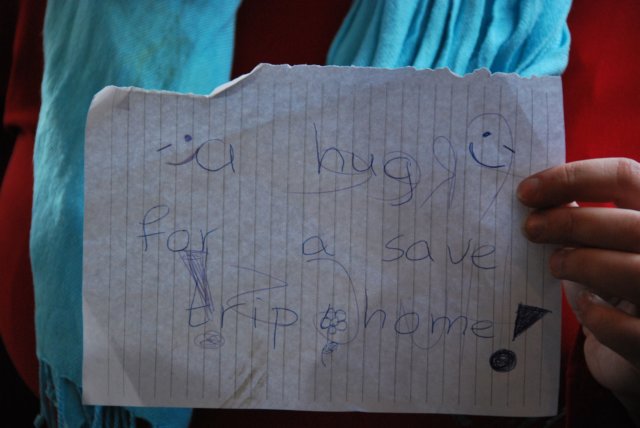 a hug
for a save
trip home!